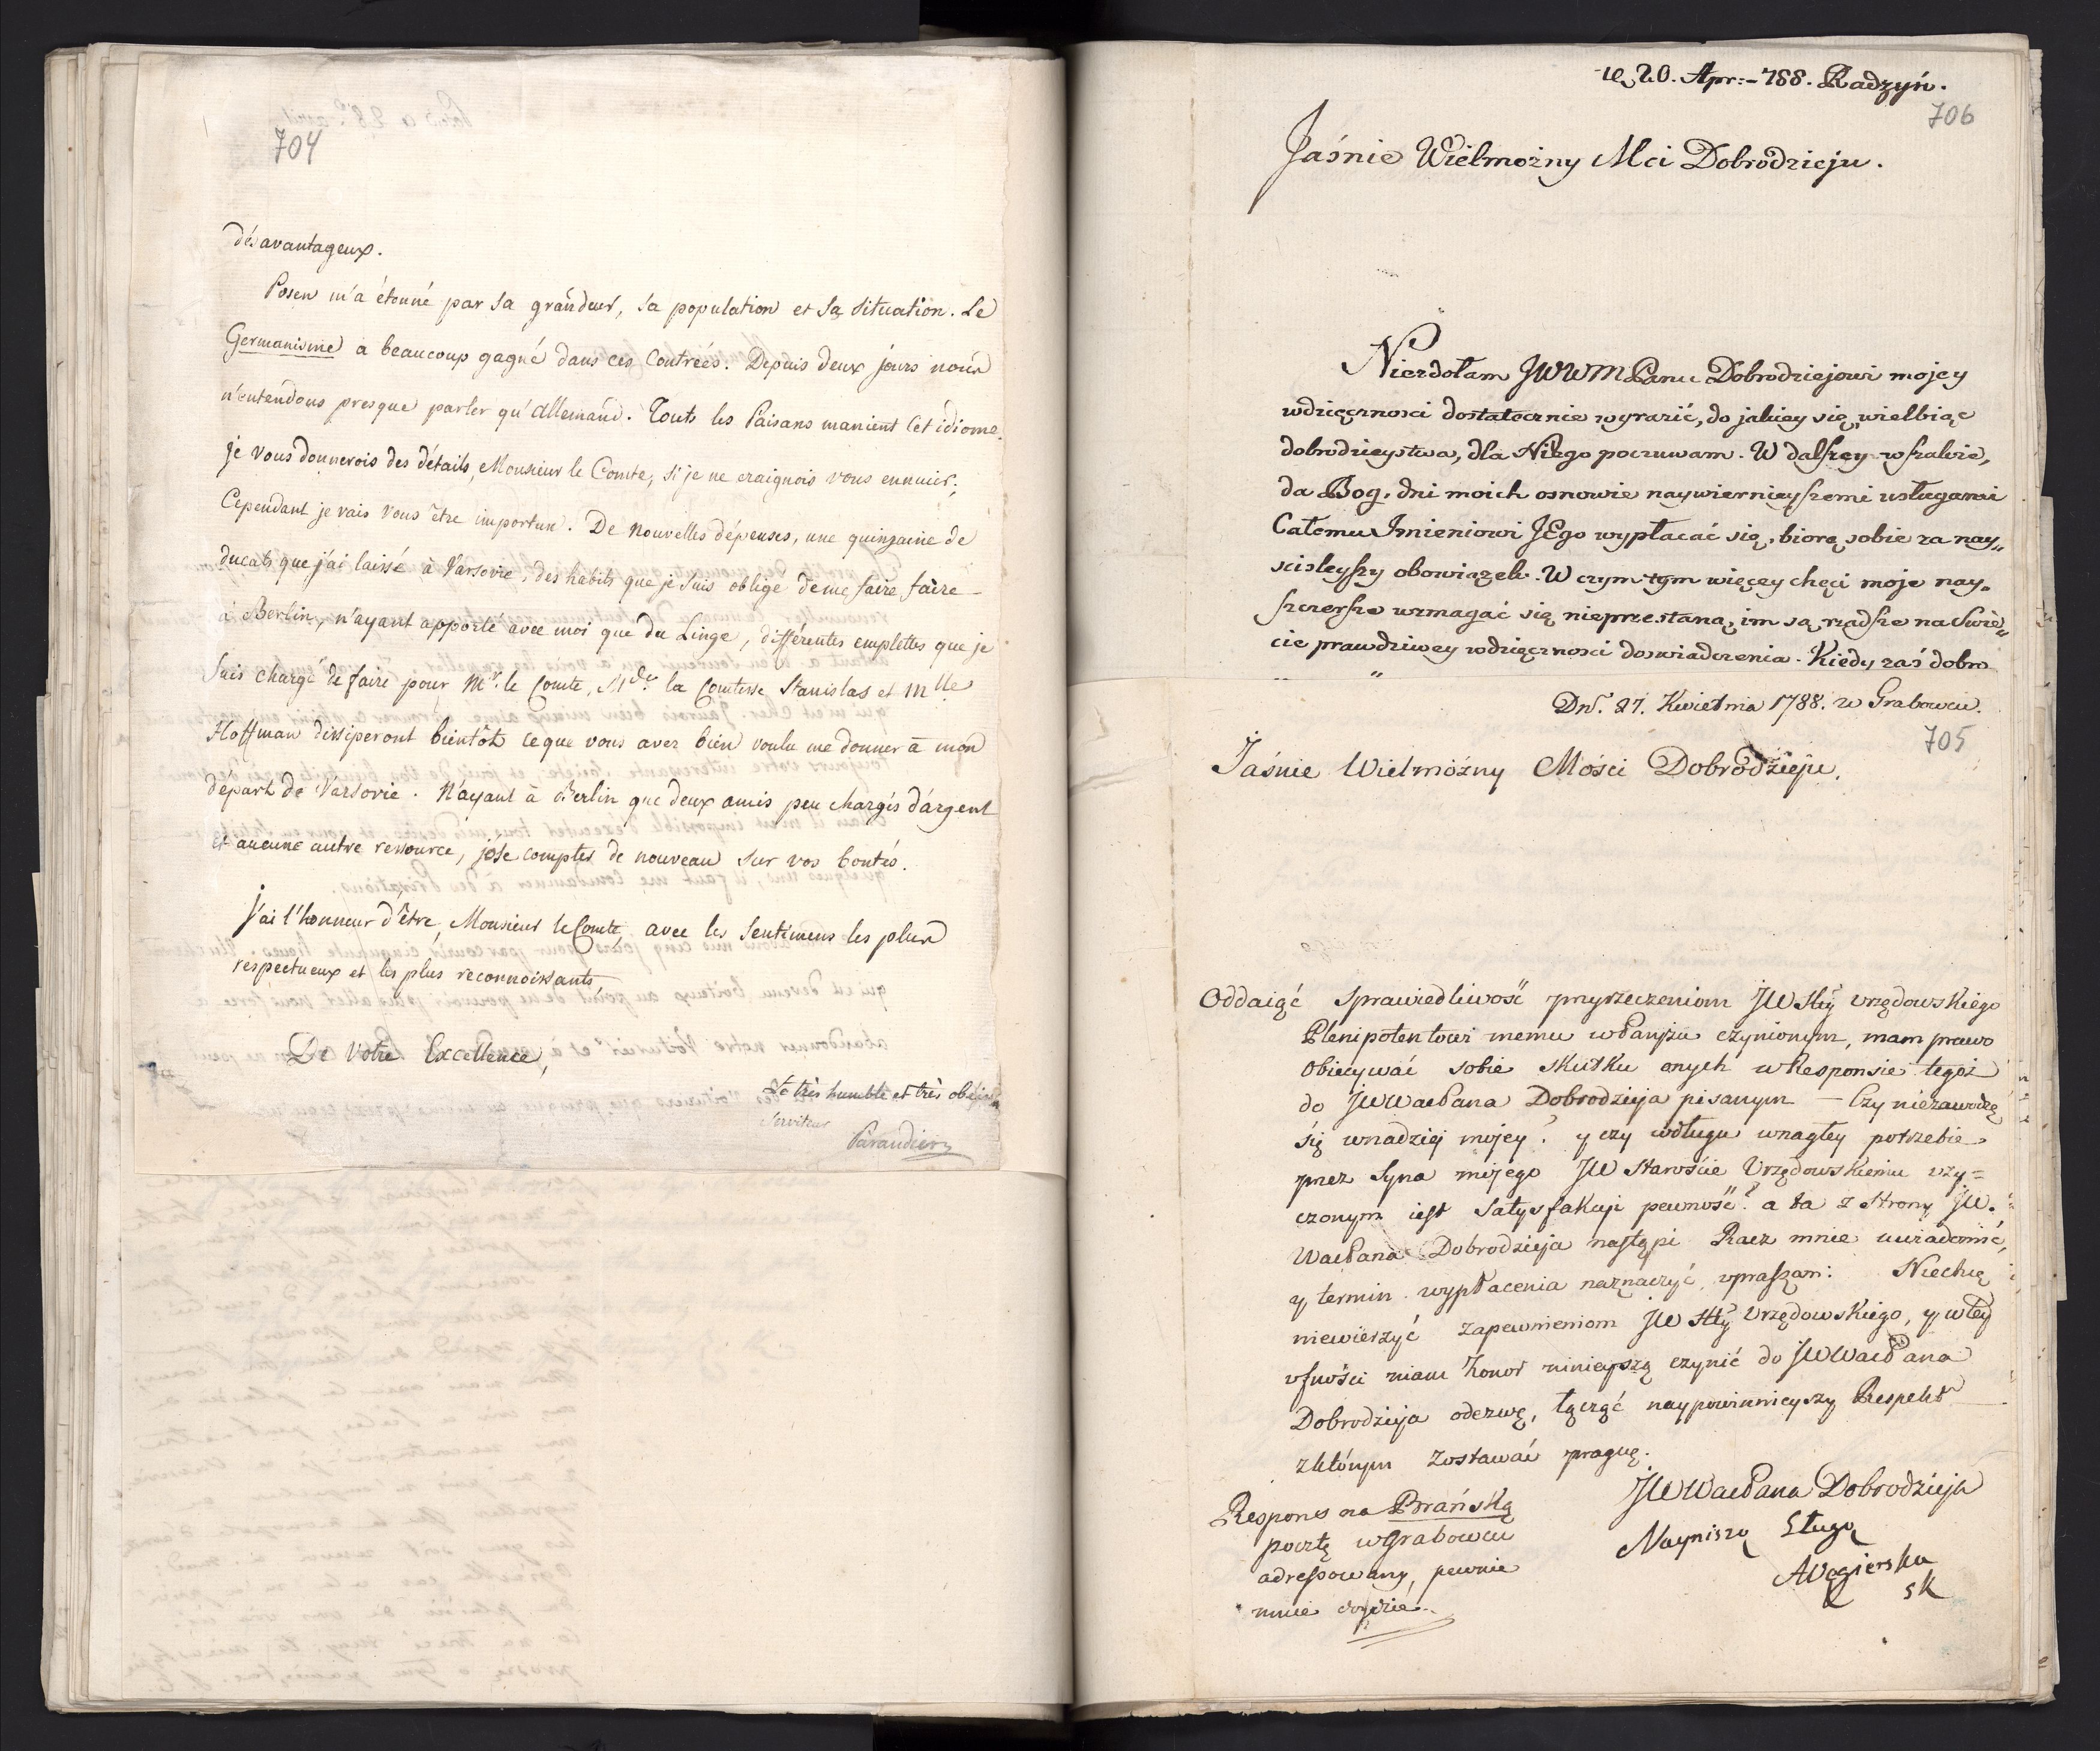 704
désavantageux.
Posen m'a étonné par sa grandeur, sa population et sa situation. Le
Germanisme a beaucoup gagné dans ces Contrées. Depuis deux jours nous
n'entendons presque parler qu'Allemand. Touts les Paisans manient Cet idiome.
Je vous donnerois des détails, Monsieur le Comte, si je ne craignois vous ennuier;
Cependant je vais vous être importun. De nouvelles dépenses, une quinzaine de
ducats que j'ai laissé à Varsovie, des habits que je suis obligé de me faire faire
à Berlin, n'ayant apporté avec moi que du Linge, différentes emplettes que je
suis chargé de faire pour Mr. le Comte, Mde. la Comtesse Stanislas et Mlle
Hoffman dissiperont bientôt ce que vous avez bien voulu me donner à mon
départ de Varsovie. N'ayant à Berlin que deux amis peu chargés d'argent
et aucune autre ressource, j'ose compter de nouveau sur vos bontés.
J'ai l'honneur d'être, Monsieur le Comte, avec les sentimens les plus
respectueux et les plus reconnoissants,
De Votre Excellence,
Le très humble et très
Serviteur
Parandier
20. Apr: 788. Radzyń.
706
Jaśnie Wielmożny Mci Dobrodzieju.
Niezdołam JWWMPanu Dobrodziejowi mojey
wdzięcznosci dostatecznie wyrazić, do jakiey się, wielbiąc
dobrodzieystwa, dla Niego poczuwam. W dalszey wszakże,
da Bog, dni moich osnowie naywiernieyszemi usługami
Całemu Imieniowi JEgo wypłacać się, biorę sobie za nay„
scisleyszy obowiązek. W czym tym więcey chęci moje nay„
szczersze wzmagać się nieprzestaną, im są rządsze na Swie„
cie prawdziwey wdzięcznosci doswiadczenia. Kiedy zaś dobro
Dnia 27. Kwietnia 1788. w Grabowcu.
705
Jaśnie Wielmożny Mości Dobrodzieju.
Oddaiąć sprawiedliwość przyrzeczeniom JW Stty Urzędowskiego
Plenipotentowi memu czynionym, mam prawo
obiecywać sobie skutku onych w Responsie tegoż
do JWWacPana Dobrodzieja pisanym – Czy niezawiodę
się wnadziej mojey? y czy długu wnagłey potrzebie
przez Syna mojego JW Staroście Urzędowskiemu uży=
czonym iest Satysfakcji pewność? a ta z Strony JW.
WacPana Dobrodzieja nastąpi Racz mnie uwiadomić,
y termin wypłacenia naznaczyć, upraszam: Niechcę
niewierzyć zapewnieniom JW Stty Urzędowskiego, y wtey
ufności mam honor ninieyszą czynić do JWWacPana
Dobrodzieja odezwę, łącząć naypowinnieyszy Respekt
zktórym zostawać pragnę.
JWWacPana Dobrodzieja
Nayniszą Sługą
AWęgierska
SK
Respons na Brańską
pocztę wGrabowcu
adressowany, pewnie
mnie dojdzie.